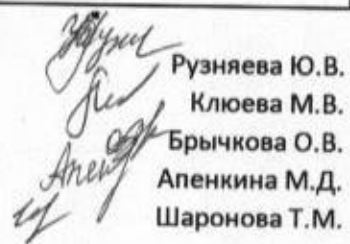 Рузняева Ю.В.
Клюева М.В.
Брычкова О.В.
Апенкина М.Д.
Шаронова Т.М.